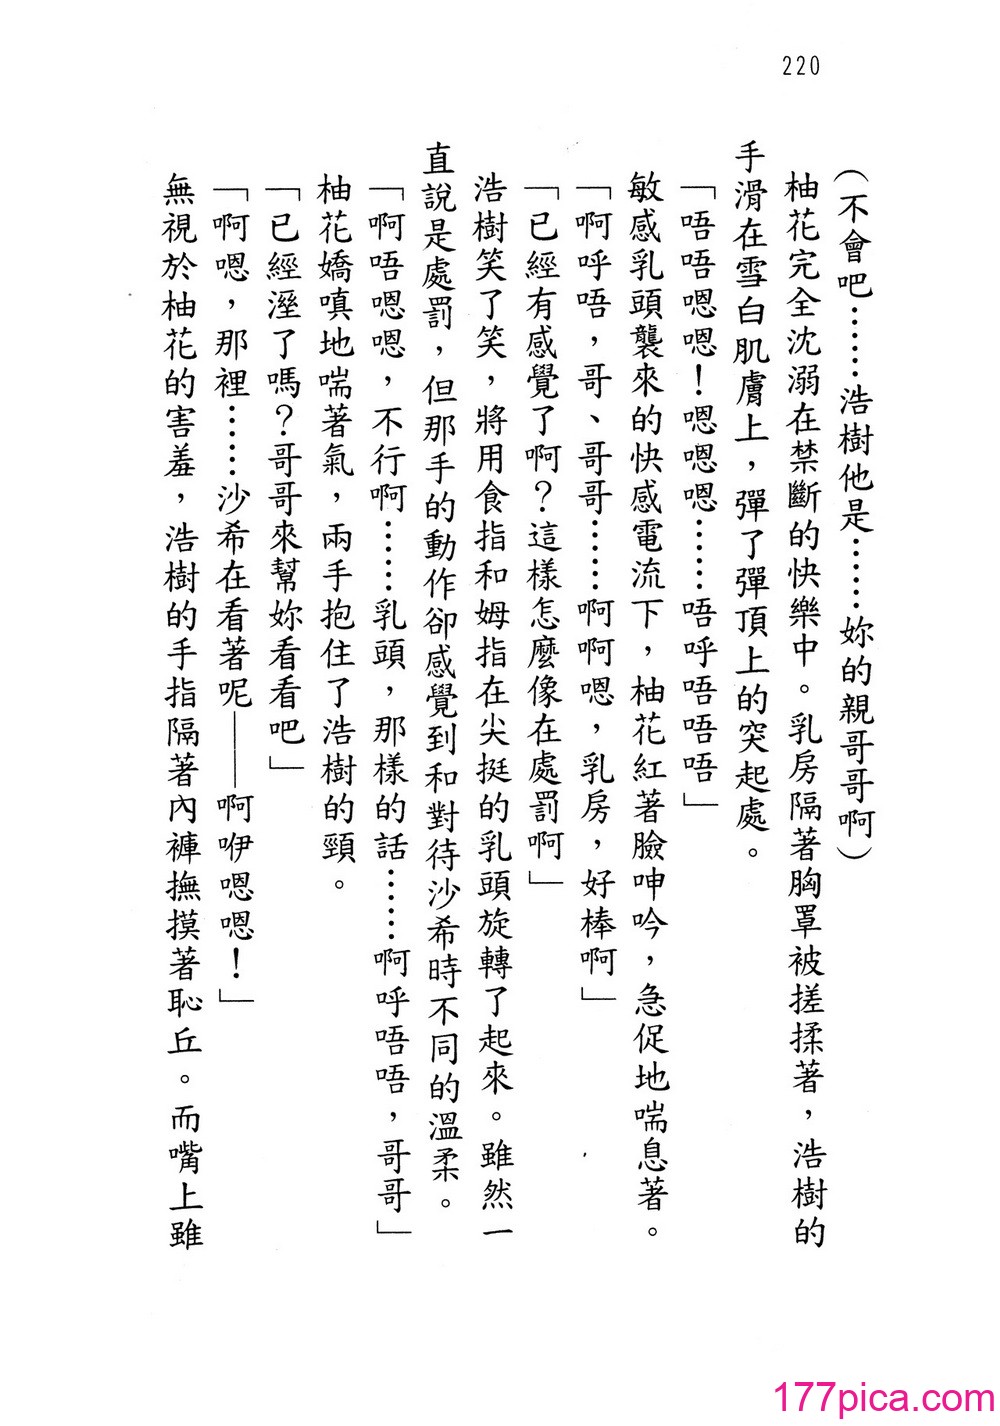 220
(不會吧……浩樹他是……妳的親哥哥啊)
柚花完全沈溺在禁斷的快樂中。乳房隔著胸罩被搓揉著，浩樹的
手滑在雪白肌膚上，彈了彈頂上的突起處。
「唔唔嗯嗯！嗯嗯嗯……唔呼唔唔唔」
敏感乳頭襲來的快感電流下，柚花紅著臉呻吟，急促地喘息著。
「啊呼唔，哥、哥哥……啊啊嗯，乳房，好棒啊」
「已經有感覺了啊？這樣怎麼像在處罰啊」
浩樹笑了笑，將用食指和姆指在尖挺的乳頭旋轉了起來。雖然一
直說是處罰，但那手的動作卻感覺到和對待沙希時不同的溫柔。
「啊唔嗯嗯，不行啊……乳頭，那樣的話……啊呼唔唔，哥哥」
柚花嬌嗔地喘著氣，兩手抱住了浩樹的頸。
「已經溼了嗎？哥哥來幫妳看看吧」
「啊嗯，那裡……沙希在看著呢——啊咿嗯嗯！」
無視於柚花的害羞，浩樹的手指隔著內褲撫摸著恥丘。而嘴上雖
177pica.com